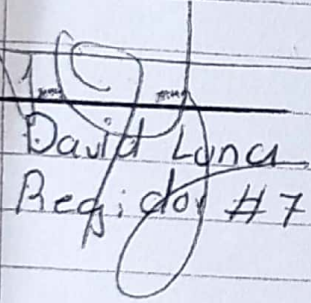 David Luna
Regidor #7